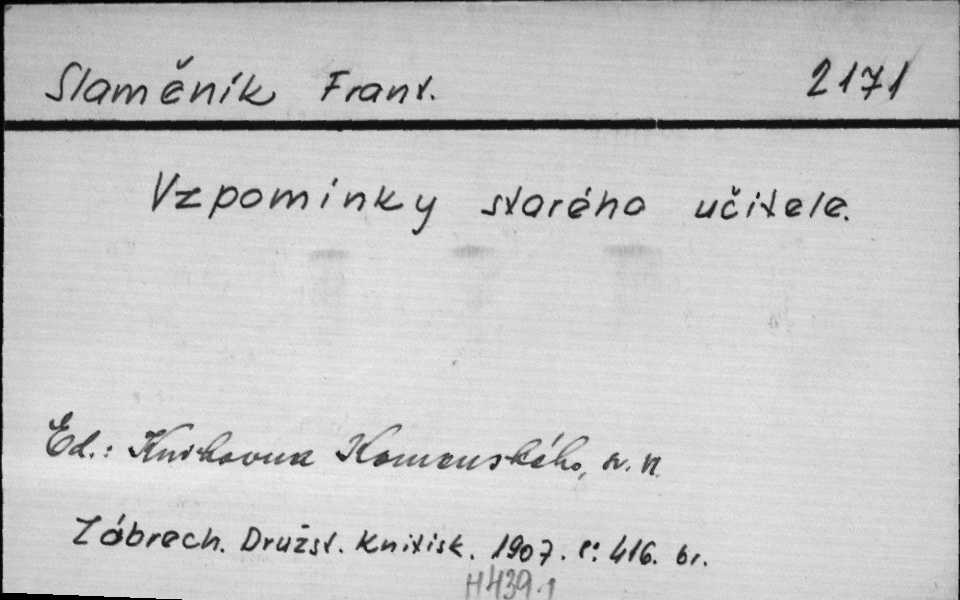 Slaměník Frant. 2171
Vzpomínky starého učitele.
Ed.: Knihovna Komenského,
Zábrech. Družst. Knitisk. 1907. 416. br.
H439.1